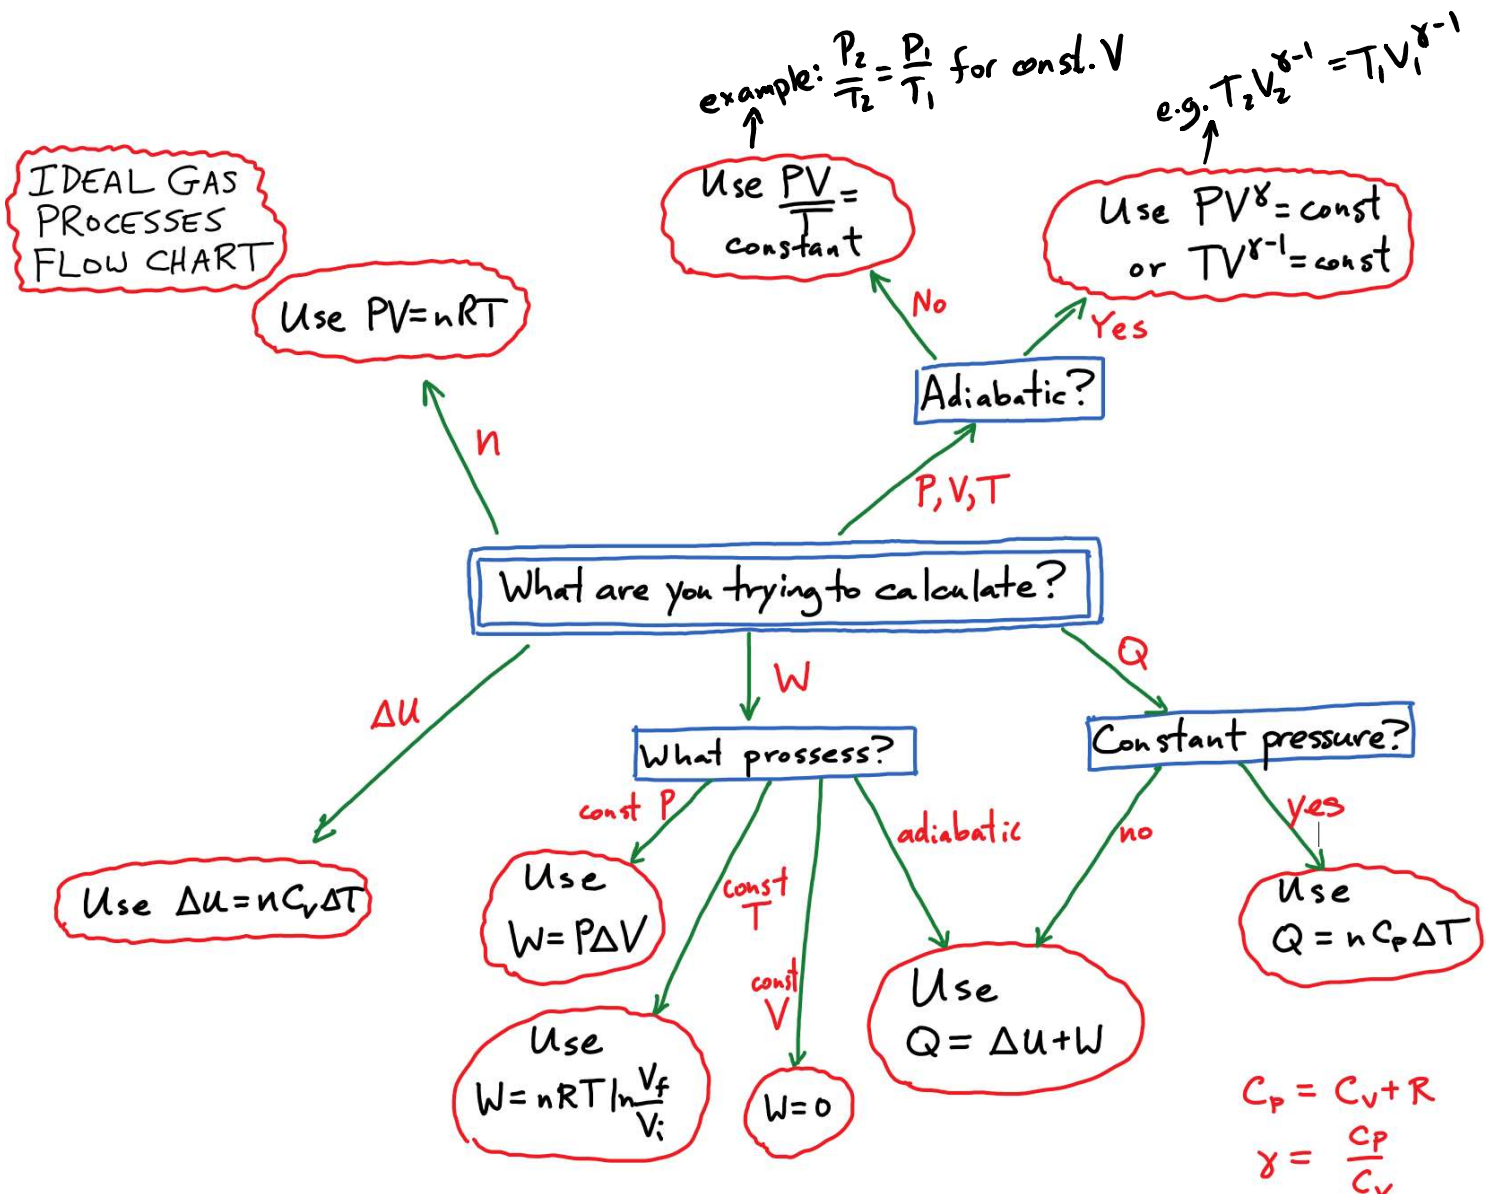 example: P₂/T₂ = P₁/T₁ for const. V
e.g. T₂V₂^γ-1 = T₁V₁^γ-1
IDEAL GAS
PROCESSES
FLOW CHART
Use PV=nRT
Use PV/T =
constant
Use PV^γ = const
or TV^γ-1 = const
No
Yes
Adiabatic?
n
P, V, T
What are you trying to calculate?
ΔU
W
Q
What prossess?
Constant pressure?
const P
const
T
const
V
adiabatic
no
yes
Use ΔU = nCᵥΔT
Use
W = PΔV
Use
Q = nCₚΔT
Use
W = nRT ln V_f/V_i
W = 0
Use
Q = ΔU + W
Cₚ = Cᵥ + R
γ = Cₚ/Cᵥ